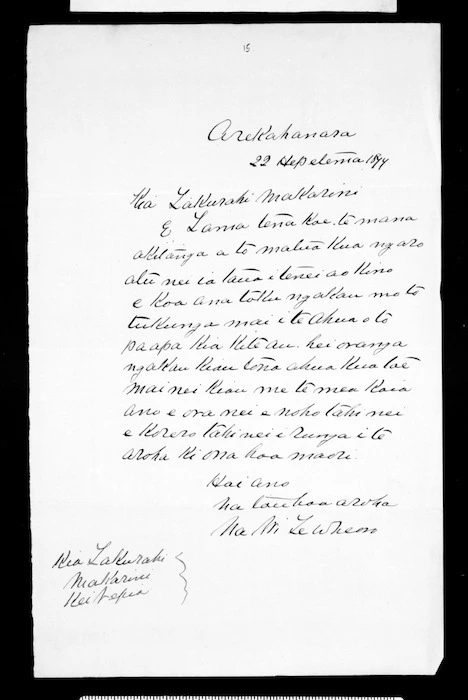 15
Arekahanara
22 Hepetema 1877
Kia Takuraki Makarini
E Tama tena koe, te mana
akitanga a to matua kua ngaro
atu nei ia taua i tenei ao kino
e koa ana toku ngakau mo to
tukunga mai i te ahua o to
paapa kia kite au. hei oranga
ngakau kiau tona ahua kua tae
mai nei kiau me te mea kaia
ano e ora nei e noho tahi nei
e korero tahi nei i runga i te
aroha ki ona hoa maori.
Hoi ano
Na tou hoa aroha
Na Wi Te Wheoro
Kia Takuraki
Makarini
Kei Nepia